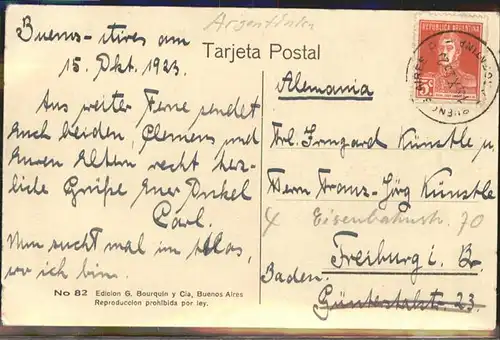 Argentinien
Buenos-Aires am
15. Okt. 1923.
Aus weiter Ferne sendet
Euch beiden, Clemens und
Euren Eltern recht herz-
liche Grüße Euer Onkel
Carl.
Nun sucht mal im Atlas,
wo ich bin.
No 82 Edicion G. Bourquin y Cia, Buenos Aires
Reproduccion prohibida por ley.
Tarjeta Postal
REPUBLICA ARGENTINA
5
BUENOS AIRES
Alemania
Frl. Irmgard Künstle u.
Herrn Franz-Jörg Künstle
Eisenbahnstr. 70
Freiburg i. B.
Baden.
Günterstalstr. 23.